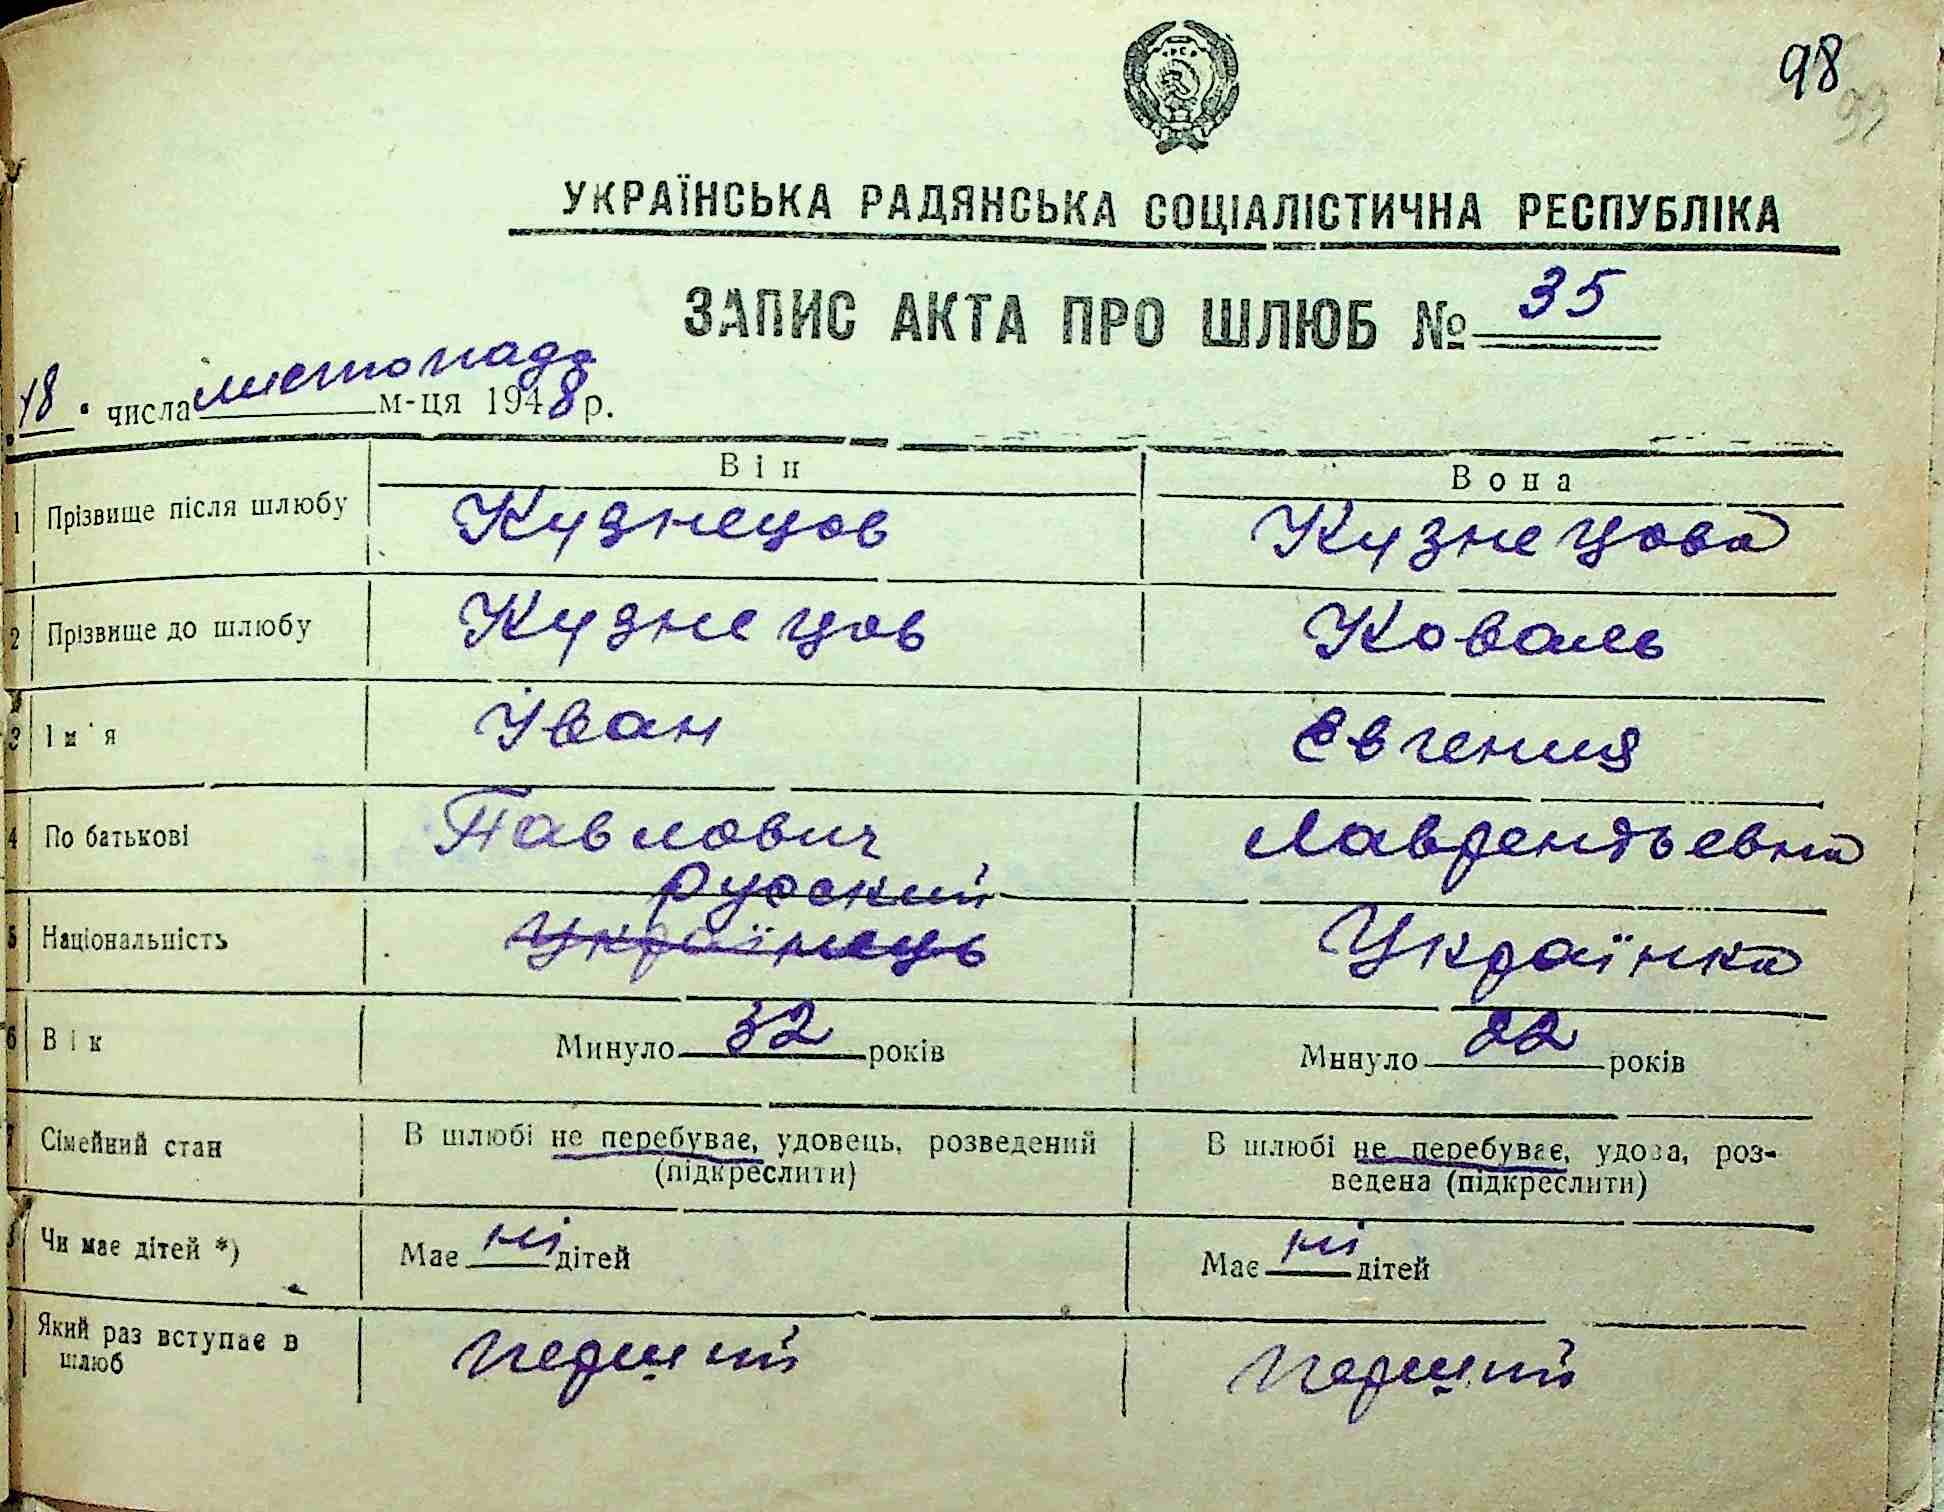 98
УРСР
УКРАЇНСЬКА РАДЯНСЬКА СОЦІАЛІСТИЧНА РЕСПУБЛІКА
ЗАПИС АКТА ПРО ШЛЮБ № 35
18 числа листопада м-ця 1948 р.
Він Вона
1 Прізвище після шлюбу Кузнецов Кузнецова
2 Прізвище до шлюбу Кузнецов Коваль
3 Ім'я Іван Євгения
4 По батькові Павлович Лаврентьевна
русский
5 Національність Українець Українка
6 Вік Минуло 32 років Минуло 22 років
7 Сімейний стан В шлюбі не перебуває, удовець, розведений В шлюбі не перебуває, удова, роз-
(підкреслити) ведена (підкреслити)
Чи має дітей *) Має ні дітей Має ні дітей
Який раз вступає в перший перший
шлюб